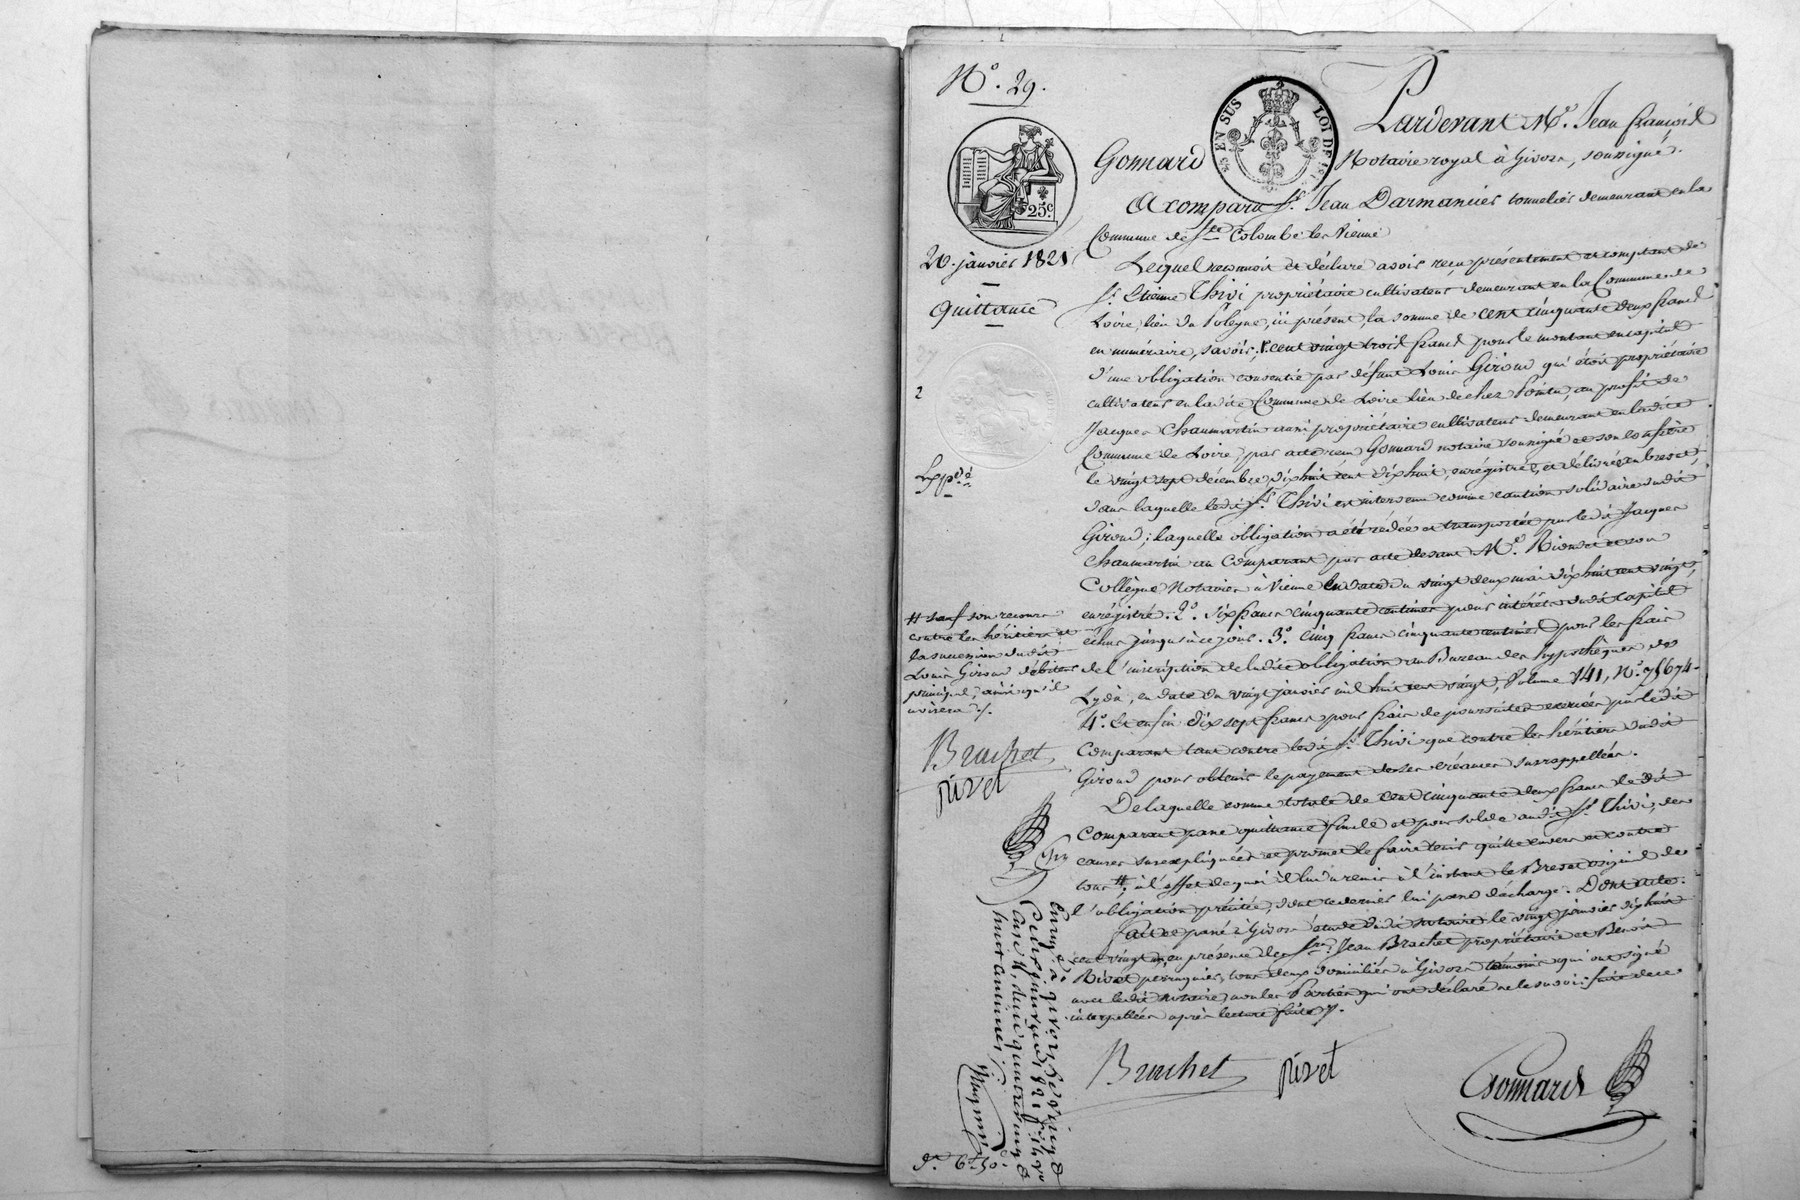 N.º 29.
5/s EN SUS
LOI DE 1
25c
20. janvier 1821
quittance
2
Exp.é
Pardevant M.e Jean françois
Gonnard Notaire royal à Givors, soussigné.
A comparu s.r Jean Darmancier tonnelier demeurant en la
Commune de ste Colombe les Vienne
Lequel reconnoit et déclare avoir reçu présentement et comptant de
s.r Etienne Thivi propriétaire cultivateur demeurant en la Commune de
Loire, lieu du , ici présent, la somme de cent cinquante deux francs
en numéraire, savoir, 1.º cent vingt trois francs pour le montant en capital
d'une obligation consentie par défunt Louis Giroud qui étoit propriétaire
cultivateur en ladite Commune de Loire lieu de chez Pointu, au profit de
Jacques Chaumartin aussi propriétaire cultivateur demeurant en ladite
Commune de Loire, par acte reçu Gonnard notaire soussigné et son confrère
le vingt sept décembre dix huit cent dix huit, enrégistré, et délivré en brevet,
dans laquelle ledit s.r Thivi est intervenu comme caution solidaire dudit
Giroud; laquelle obligation a été cédée et transportée par ledit Jacques
Chaumartin au Comparant par acte devant M.e et son
Collègue Notaires à Vienne en date du vingt deux mai dix huit cent vingt,
enrégistré. 2.º six francs cinquante centimes pour intérêts dudit capital
échus jusqu'à ce jour. 3.º cinq francs cinquante centimes pour les frais
de l'inscription de ladite obligation au Bureau des hypothèques de
Lyon, en date du vingt janvier mil huit cent vingt, Volume 141, N.º 75674.
4.º Et enfin dix sept francs pour frais de poursuites exercées par ledit
Comparant tant contre ledit s.r Thivi que contre les héritiers dudit
Giroud pour obtenir le payement de ses créances susrappellées.
De laquelle somme totale de cent cinquante deux francs le dit
Comparant passe quittance finale et pour solde audit s.r Thivi, des
causes susexpliquées et promet le faire tenir quitte envers et contre
tous #; à l'effet de quoi il lui a remis à l'instant le Brevet original de
l'obligation précitée, dont ce dernier lui passe décharge. Dont acte.
fait et passé à Givors étude dudit notaire le vingt janvier dix huit
cent vingt un, en présence des srs Jean Brachet propriétaire et Benoit
Rivet perruquier, tous deux domiciliés à Givors témoins qui ont signé
avec ledit notaire, non les Parties qui ont déclaré ne le savoir faire de ce
interpellées après lecture faite ./.
# sauf son recours
contre les héritiers et
la succession dudit
Louis Giroud débiteur
principal, ainsi qu'il
avisera ./.
Brachet
rivet
Enreg.é à givors le vingt
deux francs
huit centimes
Brachet rivet Gonnard